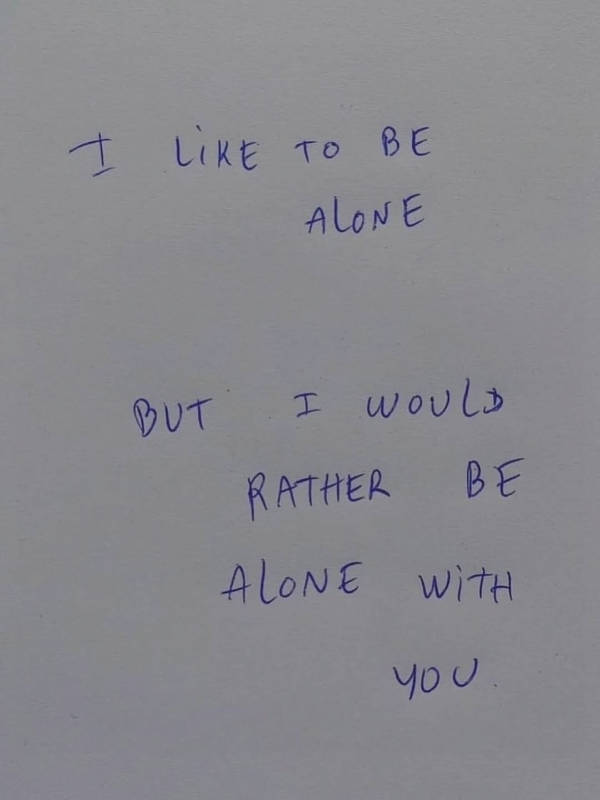 I LiKE TO BE
ALONE
BUT I WOULD
RATHER BE
ALONE WiTH
YOU.